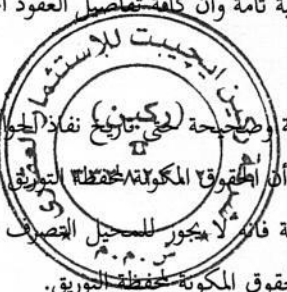 ية تامة وأن كافة تفاصيل العقود ا
ركين ايجيبت للاستثمار العقاري
(ركين)
ش.م.م
ة وصحيحة حتى تاريخ نفاذ الحوا
أن الحقوق المكونة لمحفظة التوريق
ة فانه لا يجوز للمحيل التصرف
حقوق المكونة لمحفظة التوريق.